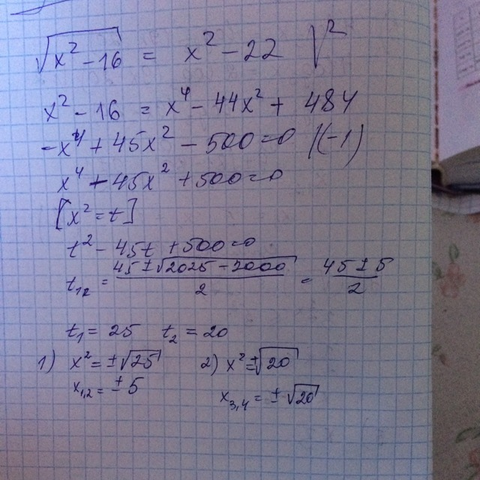 √(x² - 16) = x² - 22 |²
x² - 16 = x⁴ - 44x² + 484
-x⁴ + 45x² - 500 = 0 |(-1)
x⁴ - 45x² + 500 = 0
[x² = t]
t² - 45t + 500 = 0
t₁₂ = (45 ± √(2025 - 2000))/2 = (45 ± 5)/2
t₁ = 25 t₂ = 20
1) x² = ±√25 2) x² = ±√20
x₁,₂ = ±5 x₃,₄ = ±√20